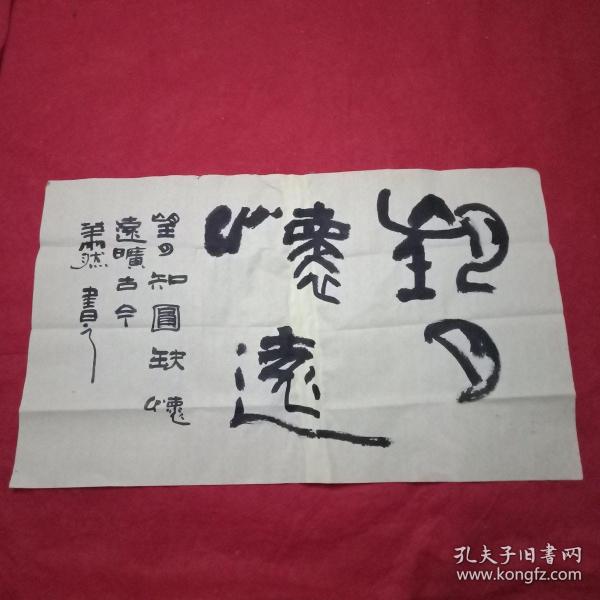 望月
懷遠
望月知圓缺懷
遠曠古今
蕭然書之
孔夫子旧书网
www.kongfz.com